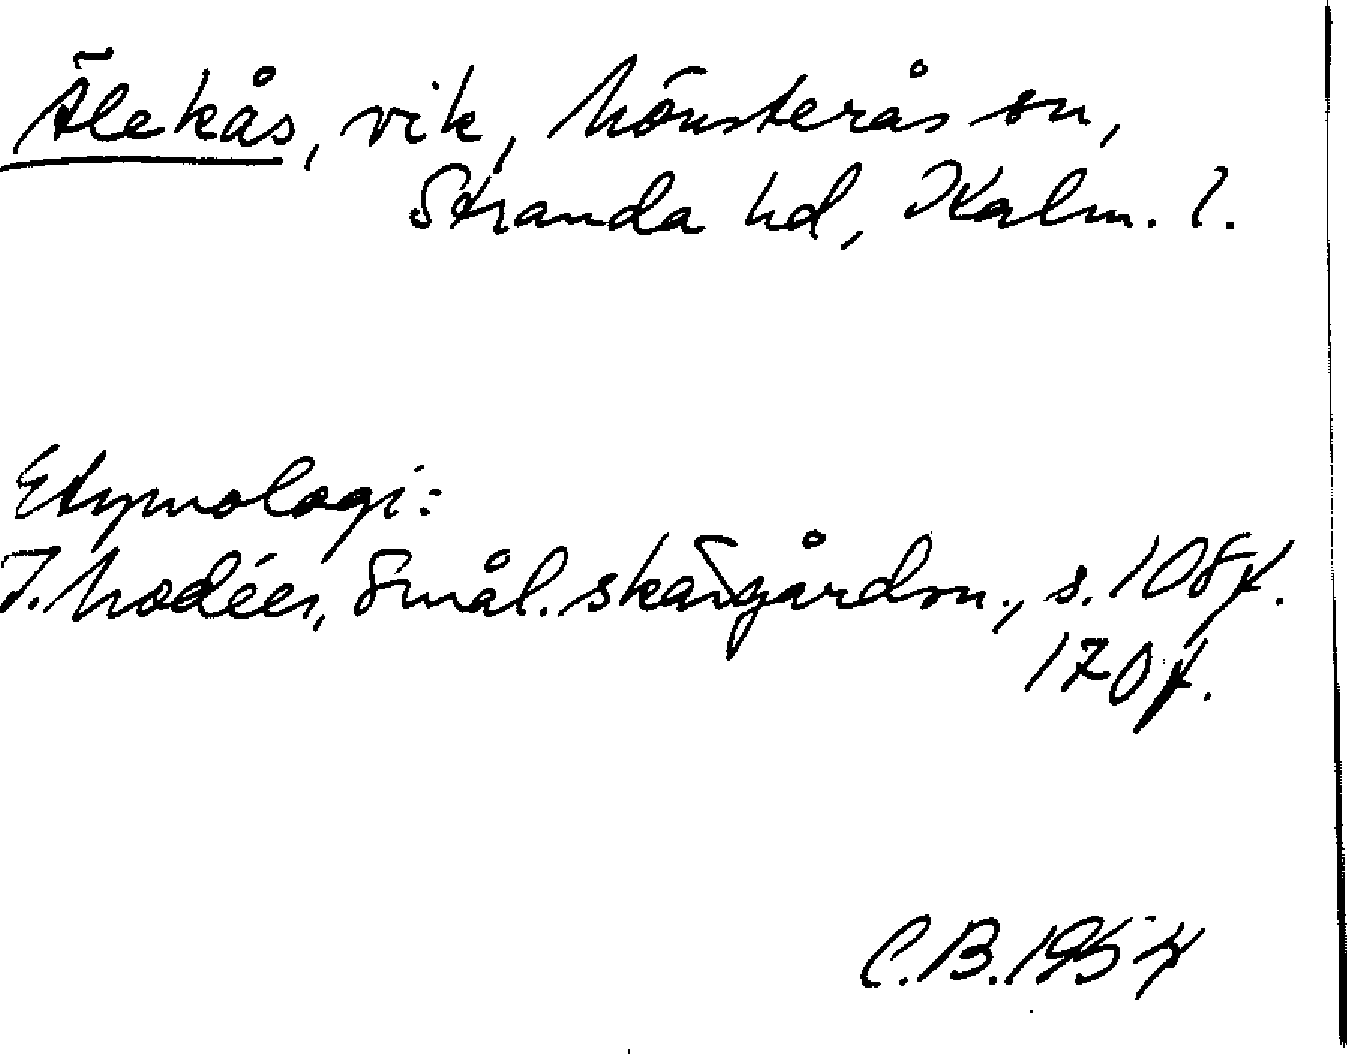 Älekås, vik, Mönsterås sn,
Stranda hd, Kalm. l.
Etymologi:
I. Modéer, Smål. skärgårdsn., s. 108 f.
170 f.
C.B. 1954